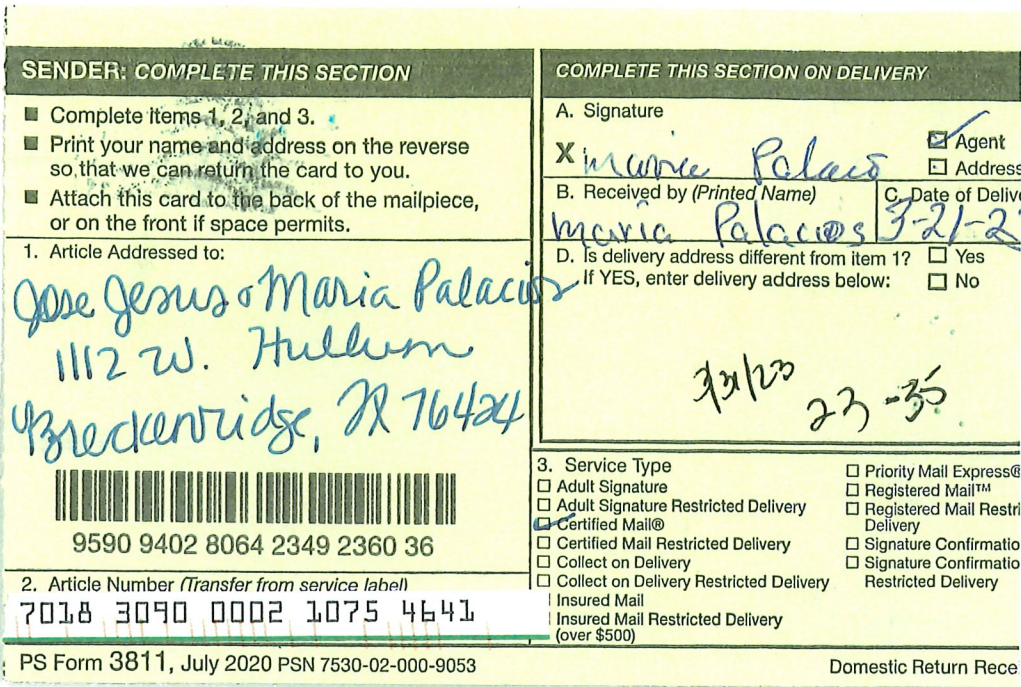 SENDER: COMPLETE THIS SECTION
■ Complete items 1, 2, and 3.
■ Print your name and address on the reverse
so that we can return the card to you.
■ Attach this card to the back of the mailpiece,
or on the front if space permits.
1. Article Addressed to:
Jose Jesus & Maria Palacios
1112 W. Hullum
Breckenridge, TX 76424
9590 9402 8064 2349 2360 36
2. Article Number (Transfer from service label)
7018 3090 0002 1075 4641
COMPLETE THIS SECTION ON DELIVERY
A. Signature
X Maria Palacio
☑ Agent
☐ Address
B. Received by (Printed Name)
Maria Palacios
C. Date of Delive
3-21-2
D. Is delivery address different from item 1? ☐ Yes
If YES, enter delivery address below: ☐ No
23-35
3. Service Type
☐ Adult Signature
☐ Adult Signature Restricted Delivery
☑ Certified Mail®
☐ Certified Mail Restricted Delivery
☐ Collect on Delivery
☐ Collect on Delivery Restricted Delivery
Insured Mail
Insured Mail Restricted Delivery
(over $500)
☐ Priority Mail Express®
☐ Registered Mail™
☐ Registered Mail Restri
Delivery
☐ Signature Confirmatio
☐ Signature Confirmatio
Restricted Delivery
PS Form 3811, July 2020 PSN 7530-02-000-9053
Domestic Return Rece